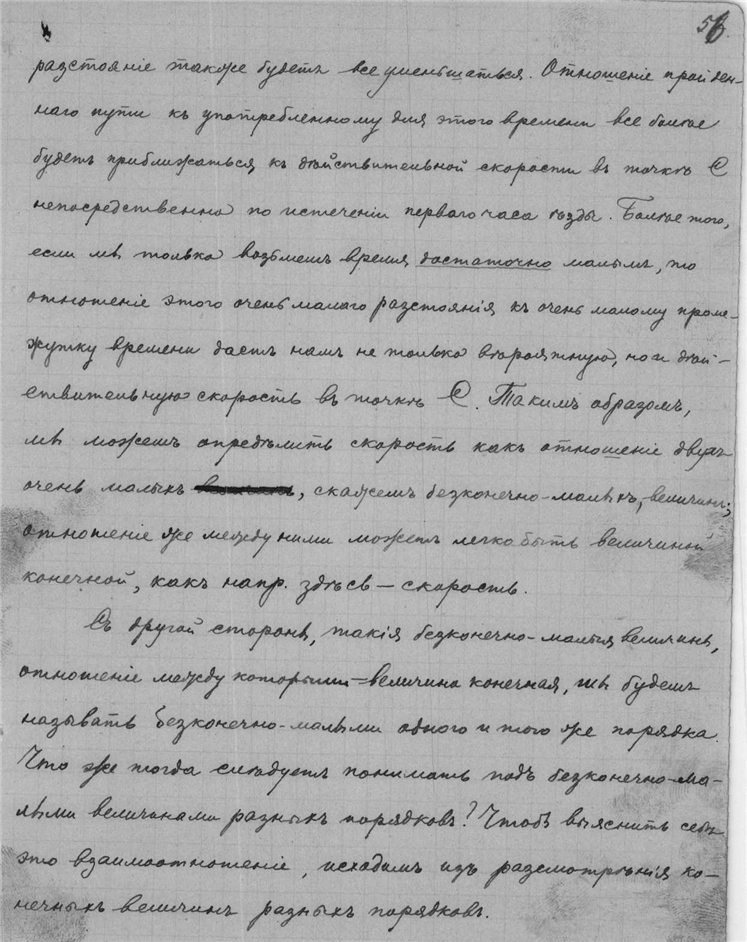 56
разстояніе также будетъ все уменьшаться. Отношеніе пройден-
наго пути къ употребленному для этого времени все болѣе
будетъ приближаться къ дѣйствительной скорости въ точкѣ С
непосредственно по истеченіи перваго часа ѣзды. Болѣе того,
если мы только возьмемъ время достаточно малымъ, то
отношеніе этого очень малаго разстоянія къ очень малому проме-
жутку времени дастъ намъ не только вѣроятную, но и дѣй-
ствительную скорость въ точкѣ С. Такимъ образомъ,
мы можемъ опредѣлить скорость какъ отношеніе двухъ
очень малыхъ, скажемъ безконечно-малыхъ, величинъ;
отношеніе же между ними можетъ легко быть величиной
конечной, какъ напр. здѣсь — скорость.
Съ другой стороны, такія безконечно-малыя величины,
отношеніе между которыми = величина конечная, мы будемъ
называть безконечно-малыми одного и того же порядка.
Что же тогда слѣдуетъ понимать подъ безконечно-ма-
лыми величинами разныхъ порядковъ? Чтобъ выяснить себѣ
это взаимоотношеніе, исходимъ изъ разсмотрѣнія ко-
нечныхъ величинъ разныхъ порядковъ.